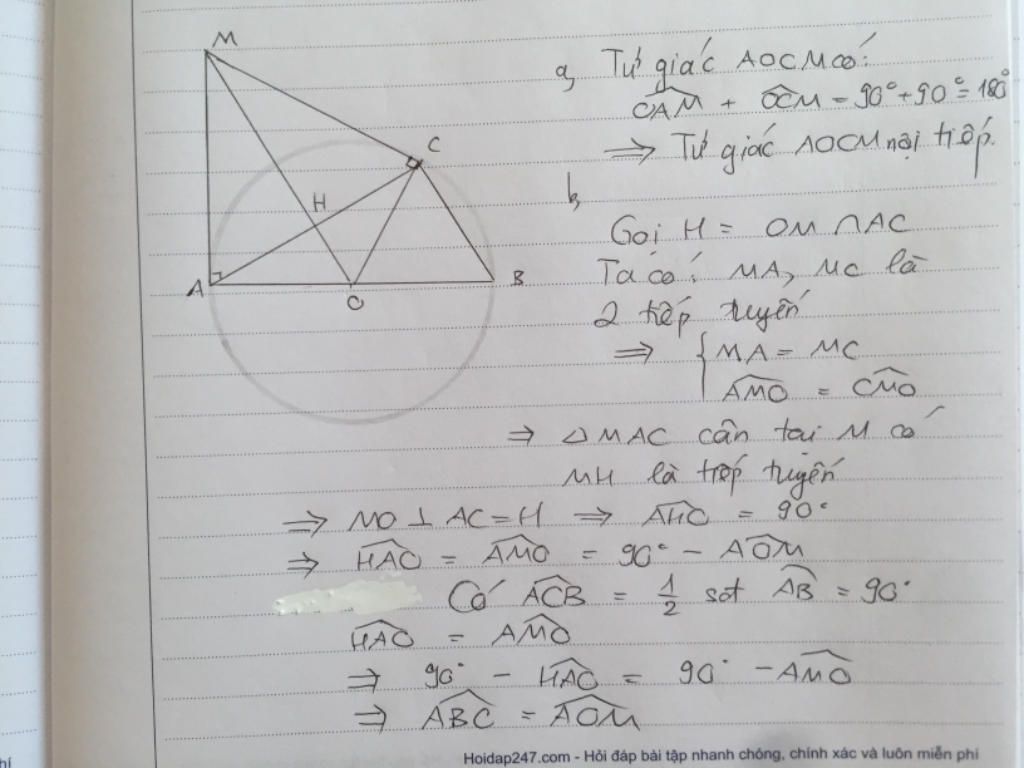 M
C
H
A
O
B
a, Tứ giác AOCM có:
OAM + OCM = 90° + 90° = 180°
=> Tứ giác AOCM nội tiếp.
b,
Gọi H = OM ∩ AC
Ta có: MA, MC là
2 tiếp tuyến
=> { MA = MC
AMO = CMO
=> △MAC cân tại M có
MH là tiếp tuyến
=> MO ⊥ AC = H => AHO = 90°
=> HAO = AMO = 90° - AOM
Có ACB = 1/2 sđt AB = 90°
HAO = AMO
=> 90° - HAO = 90° - AMO
=> ABC = AOM
Hoidap247.com - Hỏi đáp bài tập nhanh chóng, chính xác và luôn miễn phí